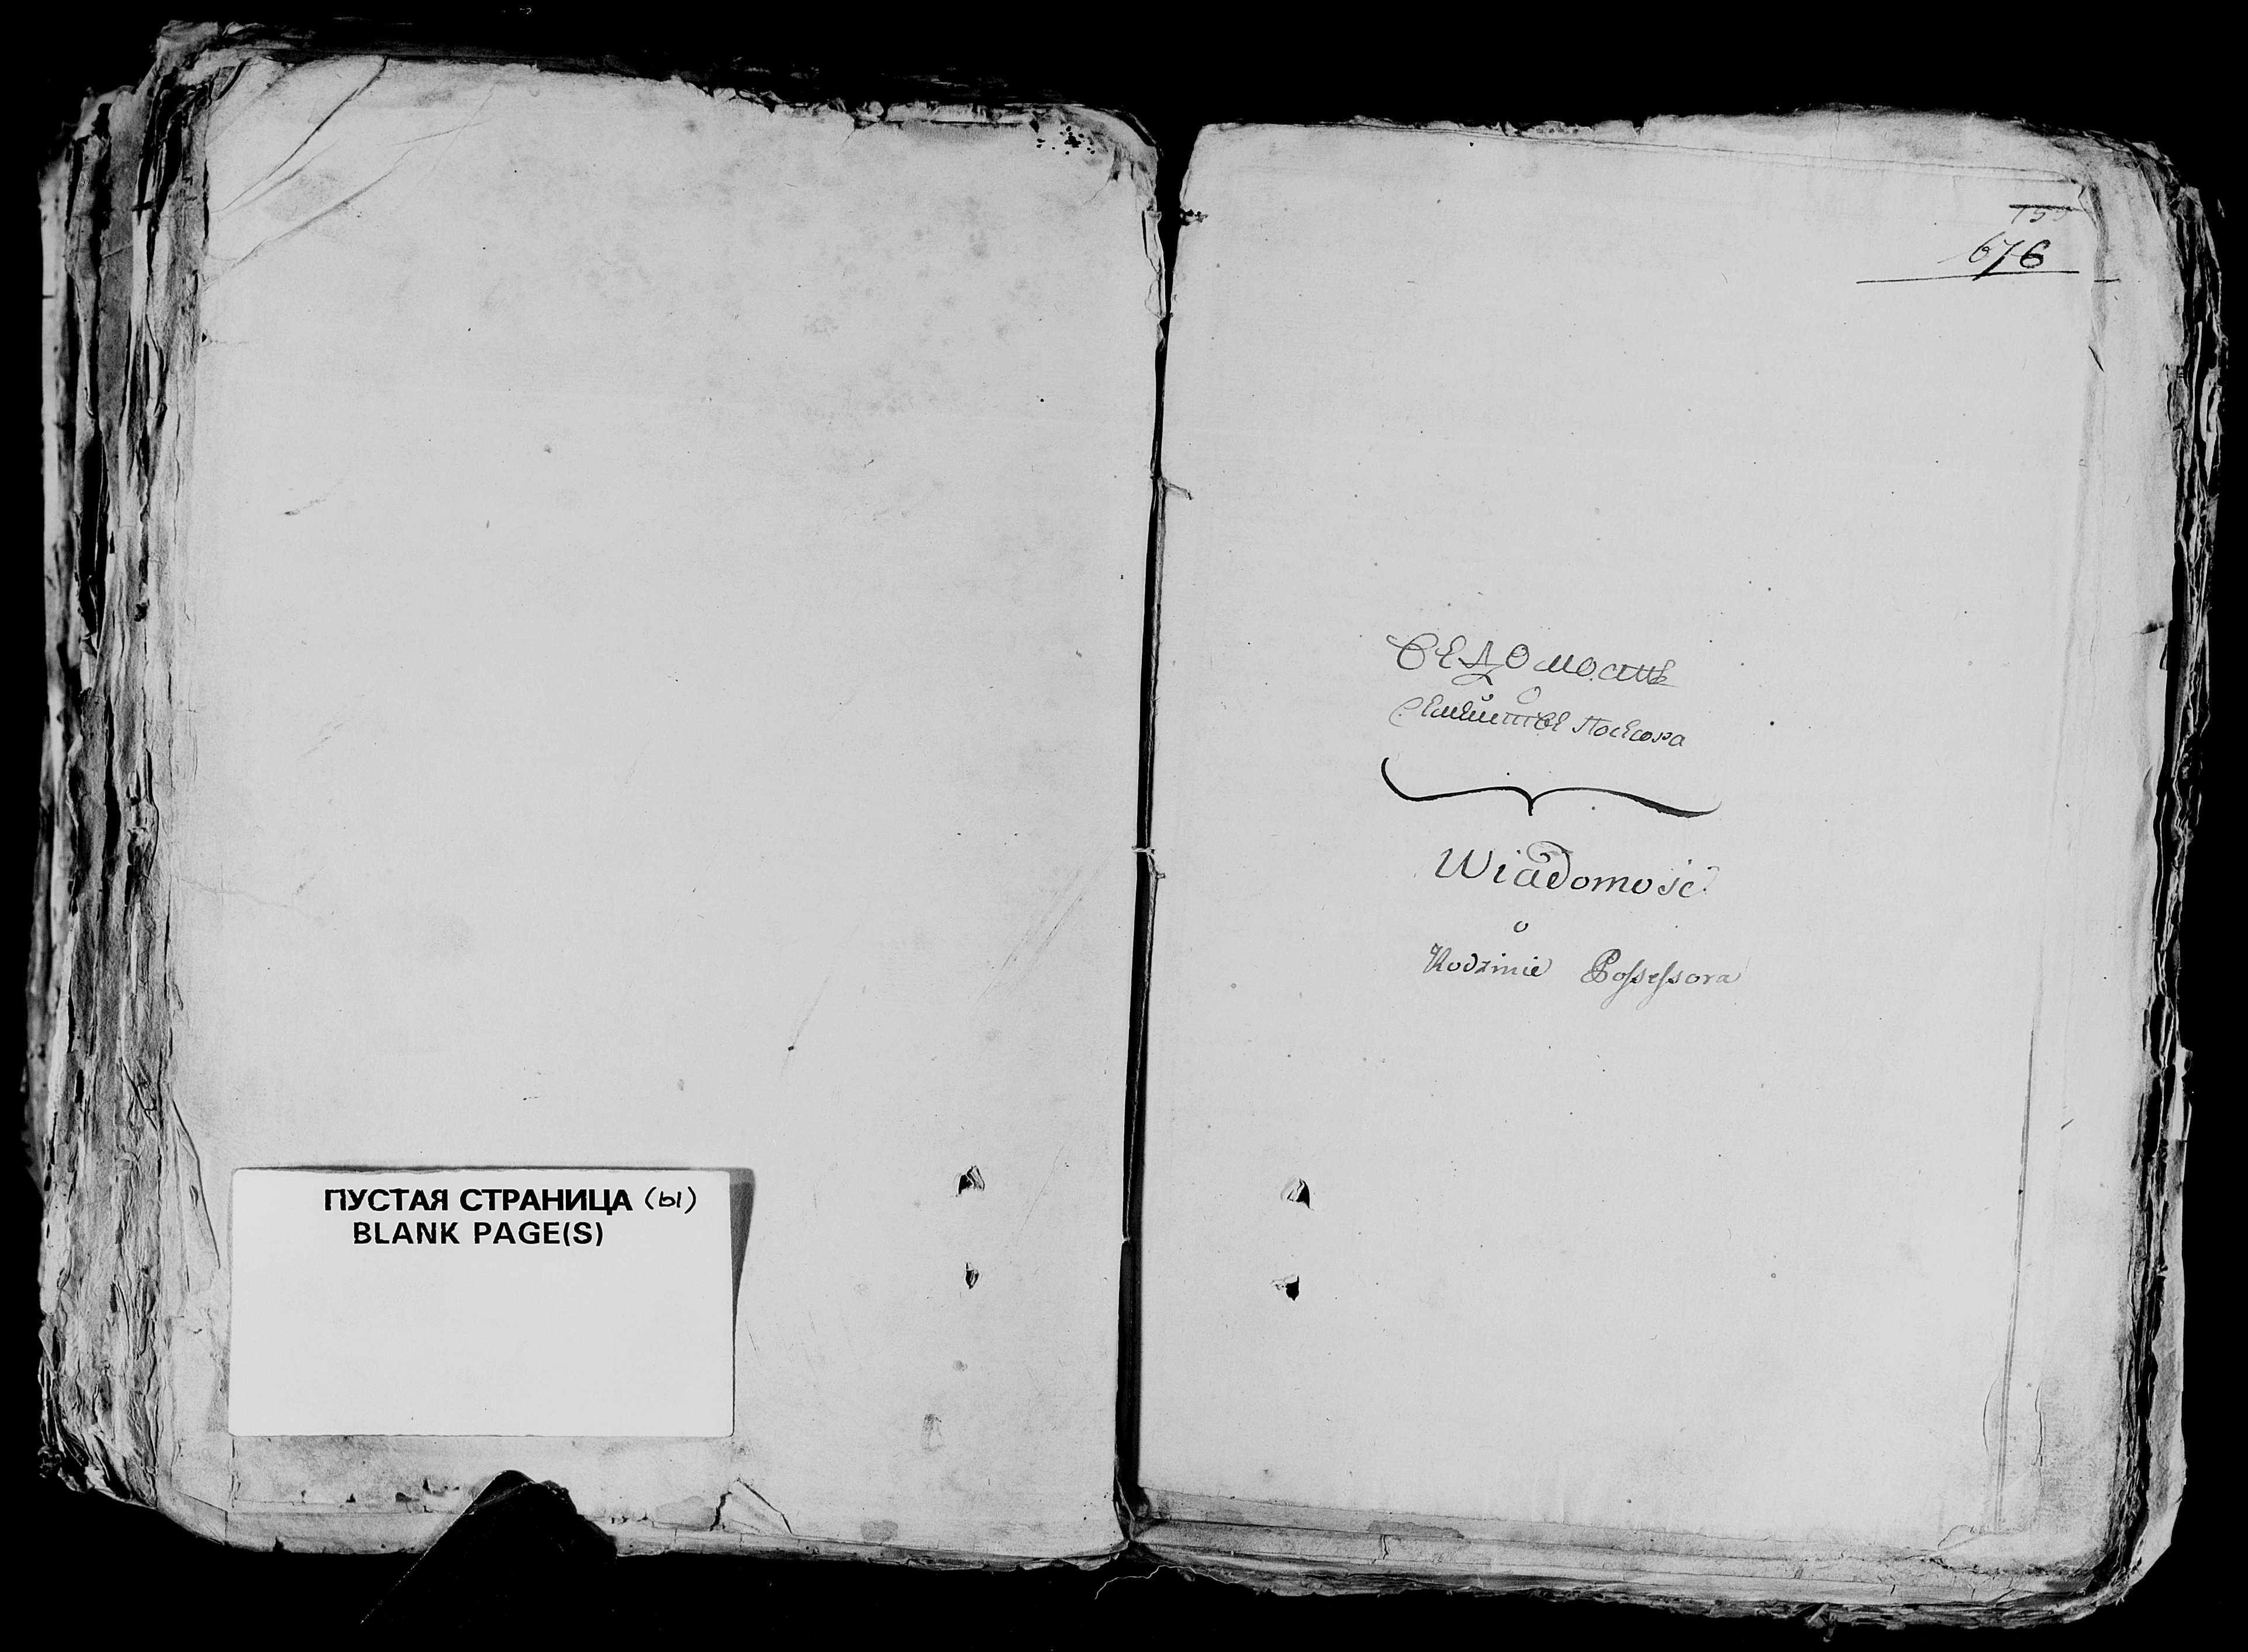 ПУСТАЯ СТРАНИЦА (ы)
BLANK PAGE(S)
676
Ведомость
о
Семействе Посесора
Wiadomość
o
Rodzinie Possessora